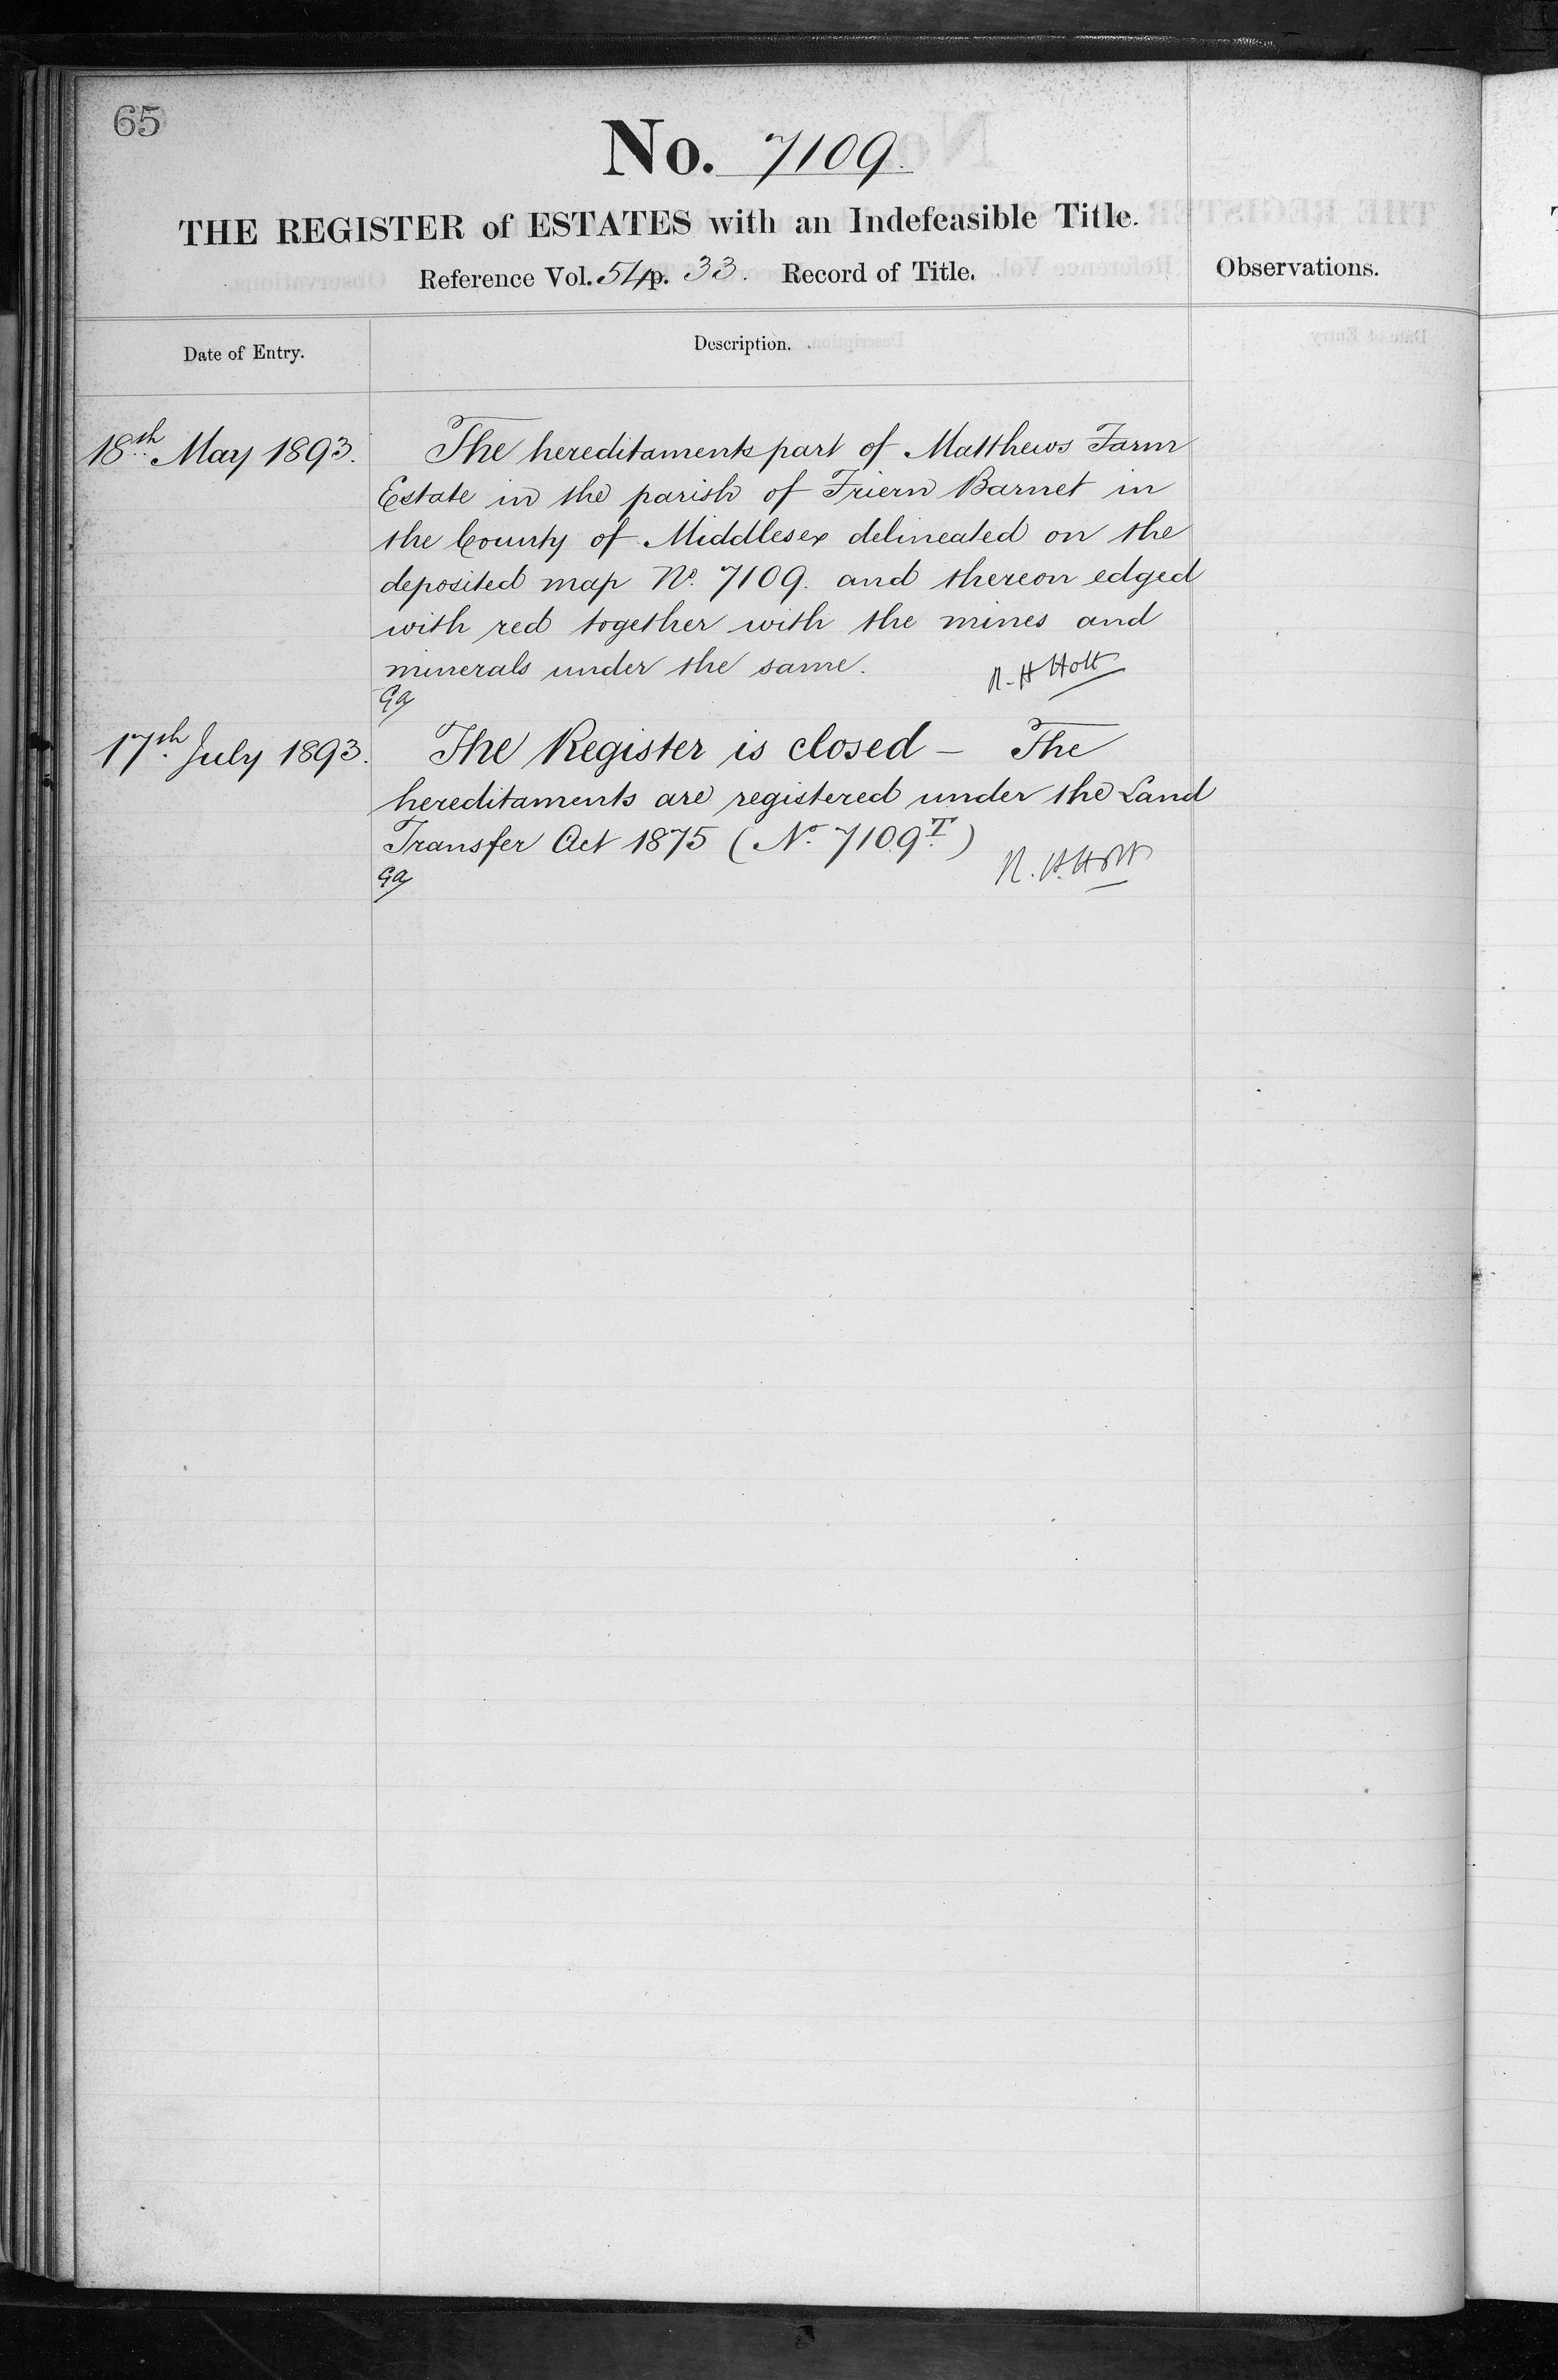 65
No. 7109.
THE REGISTER of ESTATES with an Indefeasible Title.
Reference Vol. 54 p. 33. Record of Title.
Observations.
Date of Entry.
Description.
18th May 1893.
The hereditaments part of Matthews Farm
Estate in the parish of Friern Barnet in
the County of Middlesex delineated on the
deposited map No. 7109. and thereon edged
with red together with the mines and
minerals under the same.
R. H Holt
17th July 1893.
The Register is closed – The
hereditaments are registered under the Land
Transfer Act 1875 (No. 7109T.)
R. H. Holt